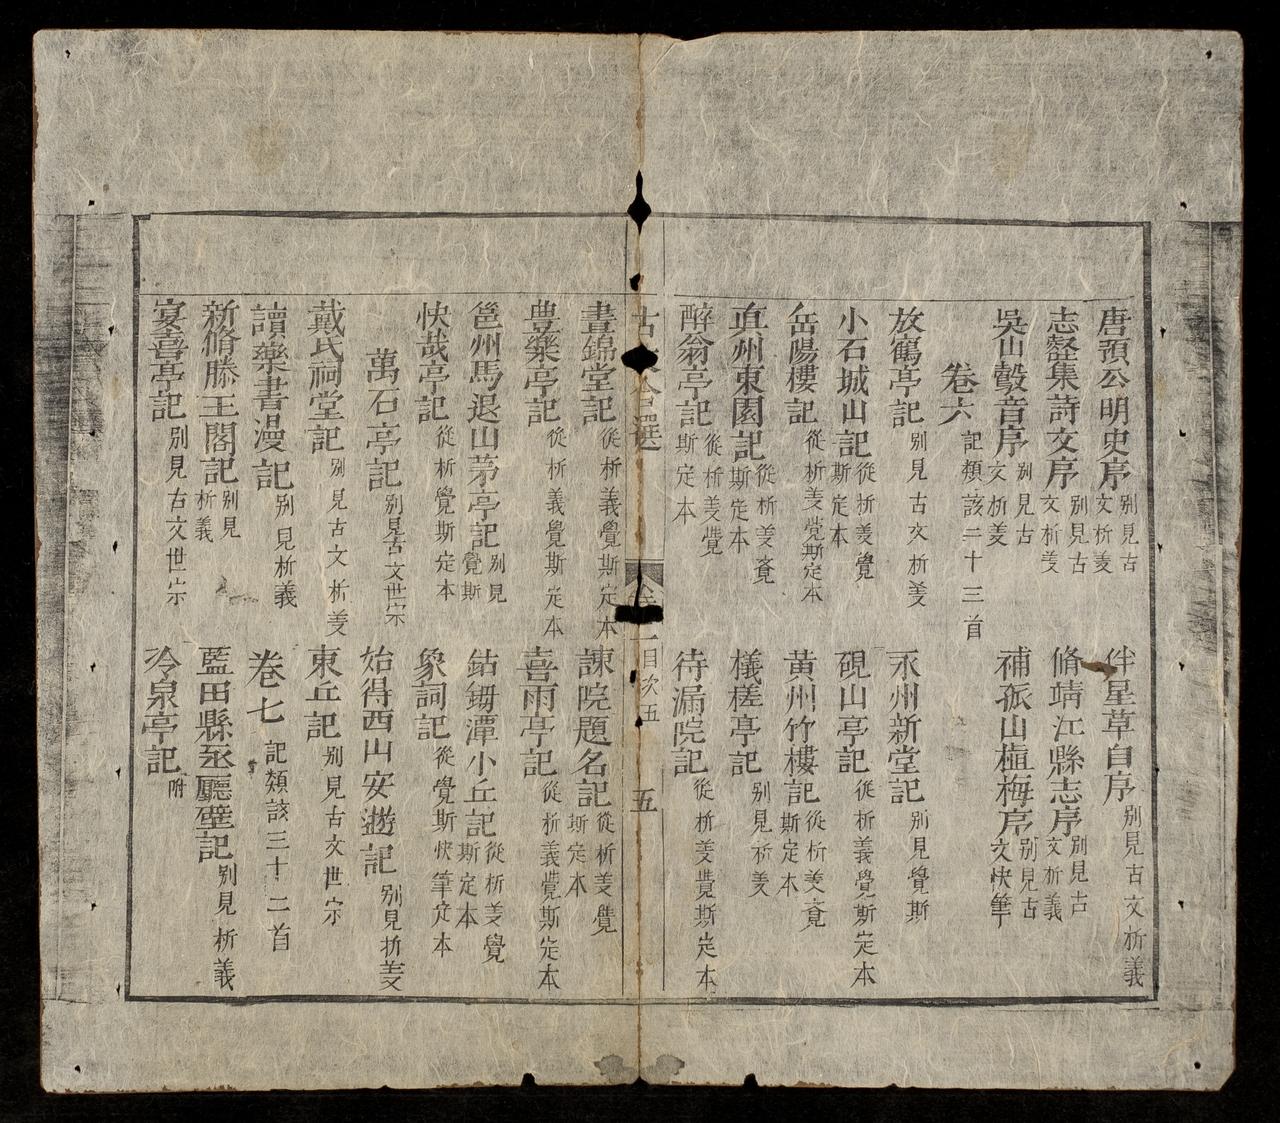 唐預公明史序 別見古文析義 伴星草自序 別見古文析義
志壑集詩文序 別見古文析義 脩靖江縣志序 別見古文析義
吳山轂音序 別見古文析義 補孤山植梅序 別見古文快筆
卷六 記類該二十三首
放鶴亭記 別見古文析義 永州新堂記 別見覺斯
小石城山記 從析義覺斯定本 硯山亭記 從析義覺斯定本
岳陽樓記 從析義覺斯定本 黃州竹樓記 從析義覺斯定本
眞州東園記 從析義覺斯定本 檥槎亭記 別見析義
醉翁亭記 從析義覺斯定本 待漏院記 從析義覺斯定本
古 合選 目次五 五
晝錦堂記 從析義覺斯定本 諫院題名記 從析義覺斯定本
豊樂亭記 從析義覺斯定本 喜雨亭記 從析義覺斯定本
邕州馬退山茅亭記 別見覺斯 鈷鉧潭小丘記 從析義覺斯定本
快哉亭記 從析覺斯定本 象詞記 從覺斯快筆定本
萬石亭記 別見古文世宗 始得西山安遊記 別見析義
戴氏祠堂記 別見古文析義 東丘記 別見古文世宗
讀藥書漫記 別見析義 卷七 記類該三十二首
新脩滕王閣記 別見析義 藍田縣丞廳壁記 別見析義
宴喜亭記 別見古文世宗 冷泉亭記 附